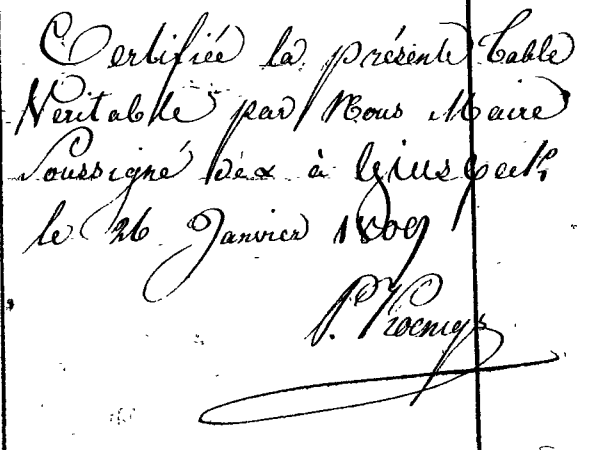 Certifiée la présente table
Veritable par Nous Maire
Soussigné
à
le 26 Janvier 1809
P.